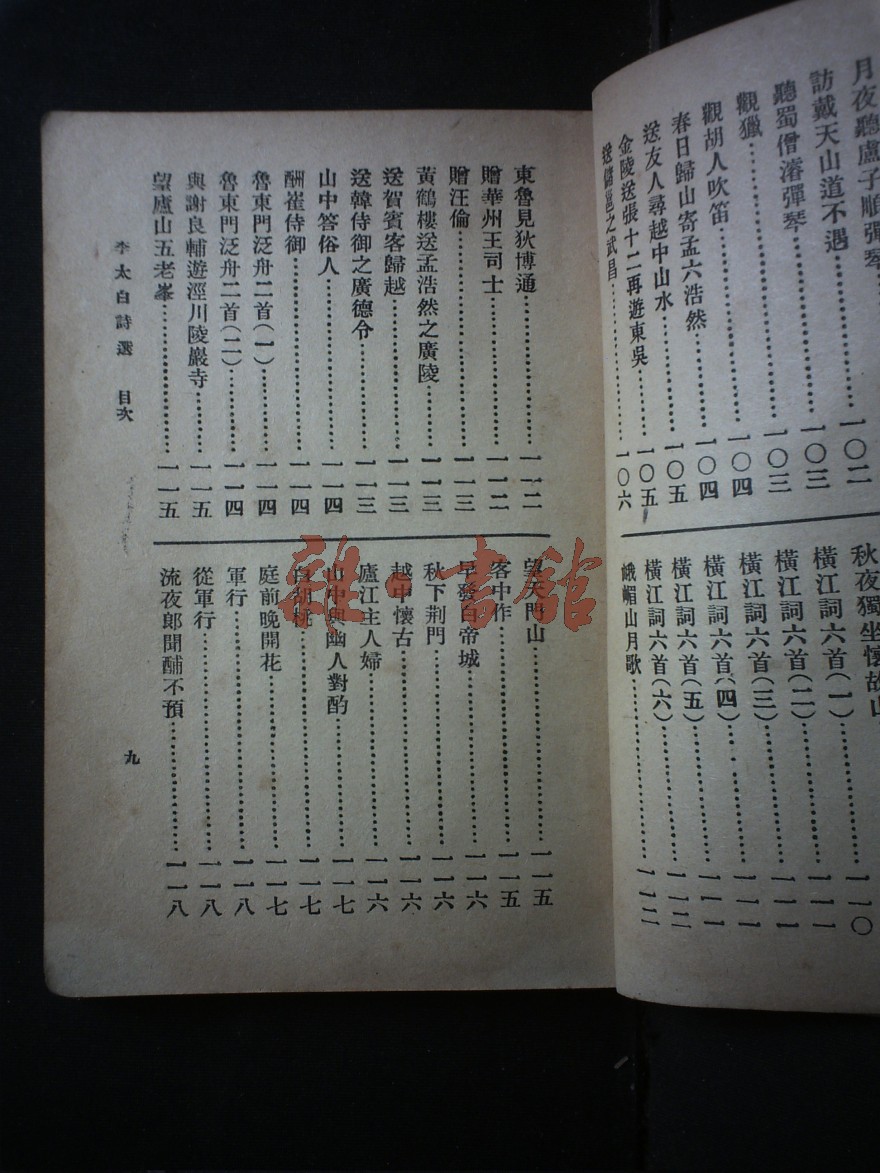 月夜聽盧子順彈琴……一〇二
訪戴天山道不遇……一〇三
聽蜀僧濬彈琴……一〇三
觀獵……一〇四
觀胡人吹笛……一〇四
春日歸山寄孟六浩然……一〇五
送友人尋越中山水……一〇五
金陵送張十二再遊東吳……一〇五
送儲邕之武昌……一〇六
秋夜獨坐懷故山……一一〇
橫江詞六首(一)……一一一
橫江詞六首(二)……一一一
橫江詞六首(三)……一一一
橫江詞六首(四)……一一一
橫江詞六首(五)……一一二
橫江詞六首(六)……一一二
峨嵋山月歌……一一二
東魯見狄博通……一一二
贈華州王司士……一一二
贈汪倫……一一三
黃鶴樓送孟浩然之廣陵……一一三
送賀賓客歸越……一一三
送韓侍御之廣德令……一一三
山中答俗人……一一四
酬崔侍御……一一四
魯東門泛舟二首(一)……一一四
魯東門泛舟二首(二)……一一四
與謝良輔遊涇川陵巖寺……一一五
望廬山五老峯……一一五
望天門山……一一五
客中作……一一五
早發白帝城……一一六
秋下荆門……一一六
越中懷古……一一六
廬江主人婦……一一六
山中與幽人對酌……一一七
白胡桃……一一七
庭前晚開花……一一七
軍行……一一八
從軍行……一一八
流夜郎聞酺不預……一一八
李太白詩選 目次
九
雜·書館